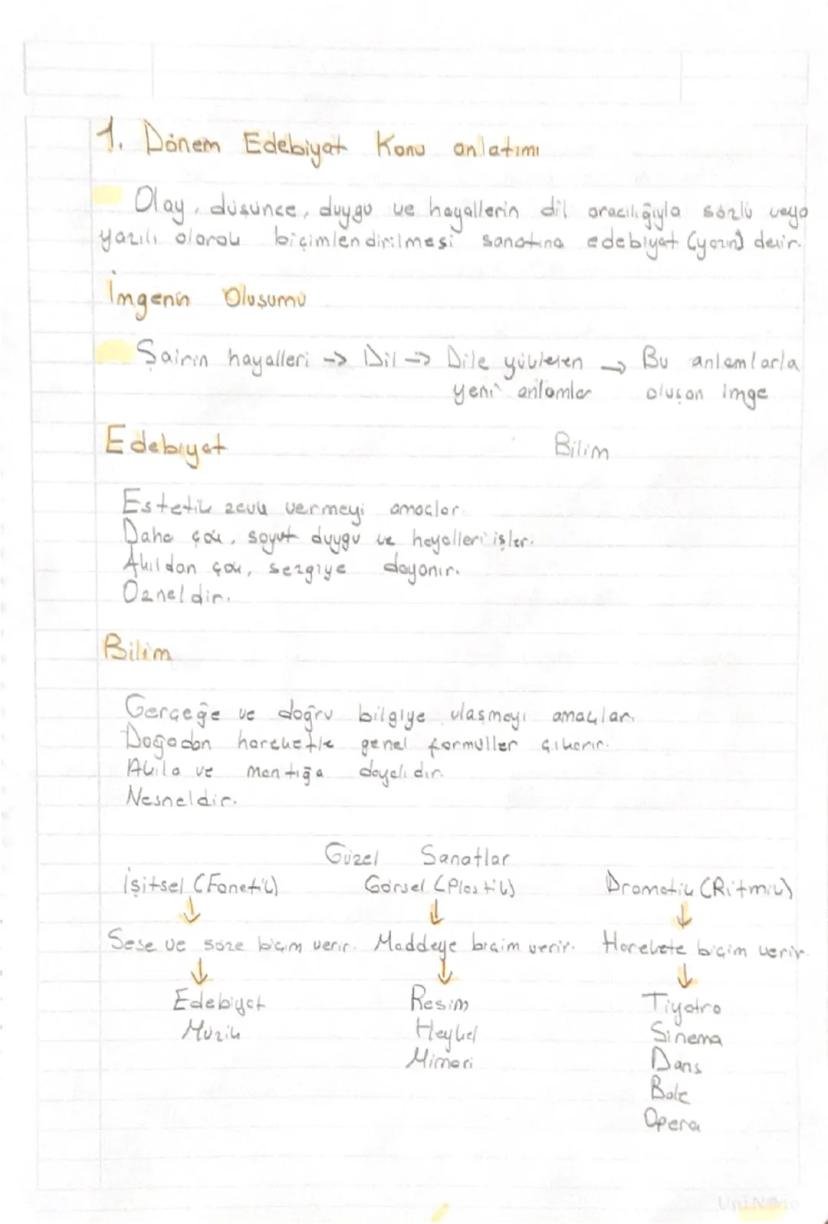 1. Dönem Edebiyat Konu anlatımı
Olay, düşünce, duygu ve hayallerin dil aracılığıyla sözlü veya
yazılı olarak biçimlendirilmesi sanatına edebiyat (yazın) denir.
İmgenin Oluşumu
Şairin hayalleri → Dil → Dile yüklenen → Bu anlamlarla
yeni anlamlar oluşan imge
Edebiyat Bilim
Estetik zevk vermeyi amaçlar
Daha çok, soyut duygu ve hayalleri işler.
Akıldan çok, sezgiye dayanır.
Özneldir.
Bilim
Gerçeğe ve doğru bilgiye ulaşmayı amaçlar.
Doğadan hareketle genel formüller çıkarır.
Akıla ve mantığa dayalıdır.
Nesneldir.
Güzel Sanatlar
İşitsel (Fonetik) Görsel (Plastik) Dramatik (Ritmik)
↓ ↓ ↓
Sese ve söze biçim verir. Maddeye biçim verir. Harekete biçim verir.
↓ ↓ ↓
Edebiyat Resim Tiyatro
Müzik Heykel Sinema
Mimari Dans
Bale
Opera